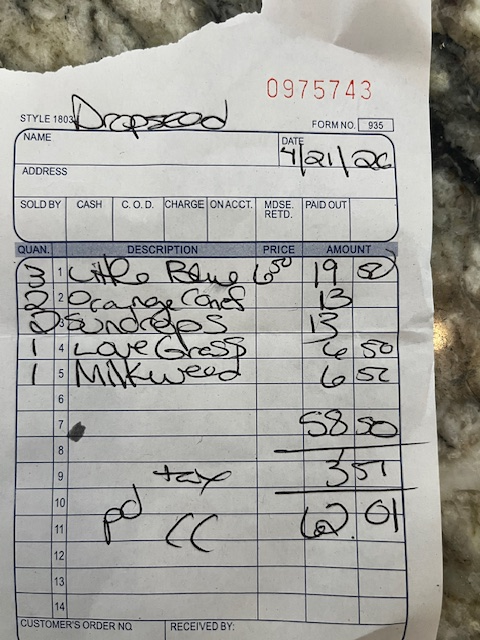 0975743
Dropseed
STYLE 1803 FORM NO. 935
NAME DATE
4/21/26
ADDRESS
SOLD BY CASH C. O. D. CHARGE ON ACCT. MDSE. RETD. PAID OUT
QUAN. DESCRIPTION PRICE AMOUNT
3 1 Little Blue 6 50 19 50
2 2 Orange Conef 13
2 3 Sundrops 13
1 4 Love Grass 6 50
1 5 Milkweed 6 50
6
7 58 50
8
9 tax 3 51
10
11 pd CC 62.01
12
13
14
CUSTOMER'S ORDER NO. RECEIVED BY: